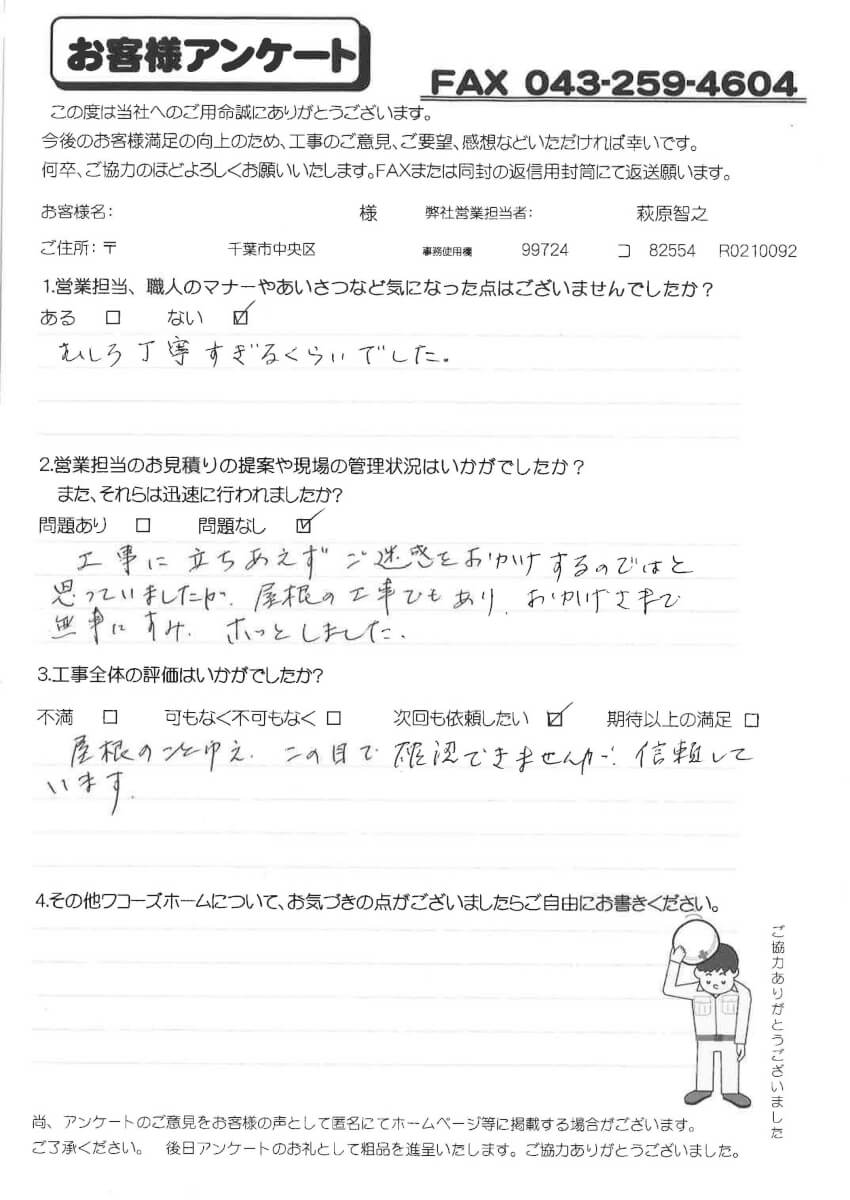 お客様アンケート
FAX 043-259-4604
この度は当社へのご用命誠にありがとうございます。
今後のお客様満足の向上のため、工事のご意見、ご要望、感想などいただければ幸いです。
何卒、ご協力のほどよろしくお願いいたします。FAXまたは同封の返信用封筒にて返送願います。
お客様名: 様 弊社営業担当者: 萩原智之
ご住所:〒 千葉市中央区 事務使用欄 99724 コ 82554 R0210092
1.営業担当、職人のマナーやあいさつなど気になった点はございませんでしたか?
ある □ ない ☑
むしろ丁寧すぎるくらいでした。
2.営業担当のお見積りの提案や現場の管理状況はいかがでしたか?
また、それらは迅速に行われましたか?
問題あり □ 問題なし ☑
工事に立ちあえずご迷惑をおかけするのではと
思っていましたが、屋根の工事でもあり、おかげさまで
無事にすみ、ホッとしました。
3.工事全体の評価はいかがでしたか?
不満 □ 可もなく不可もなく □ 次回も依頼したい ☑ 期待以上の満足 □
屋根のことゆえ、この目で確認できませんが、信頼して
います。
4.その他ワコーズホームについて、お気づきの点がございましたらご自由にお書きください。
ご協力ありがとうございました
尚、アンケートのご意見をお客様の声として匿名にてホームページ等に掲載する場合がございます。
ご了承ください。 後日アンケートのお礼として粗品を進呈いたします。ご協力ありがとうございました。